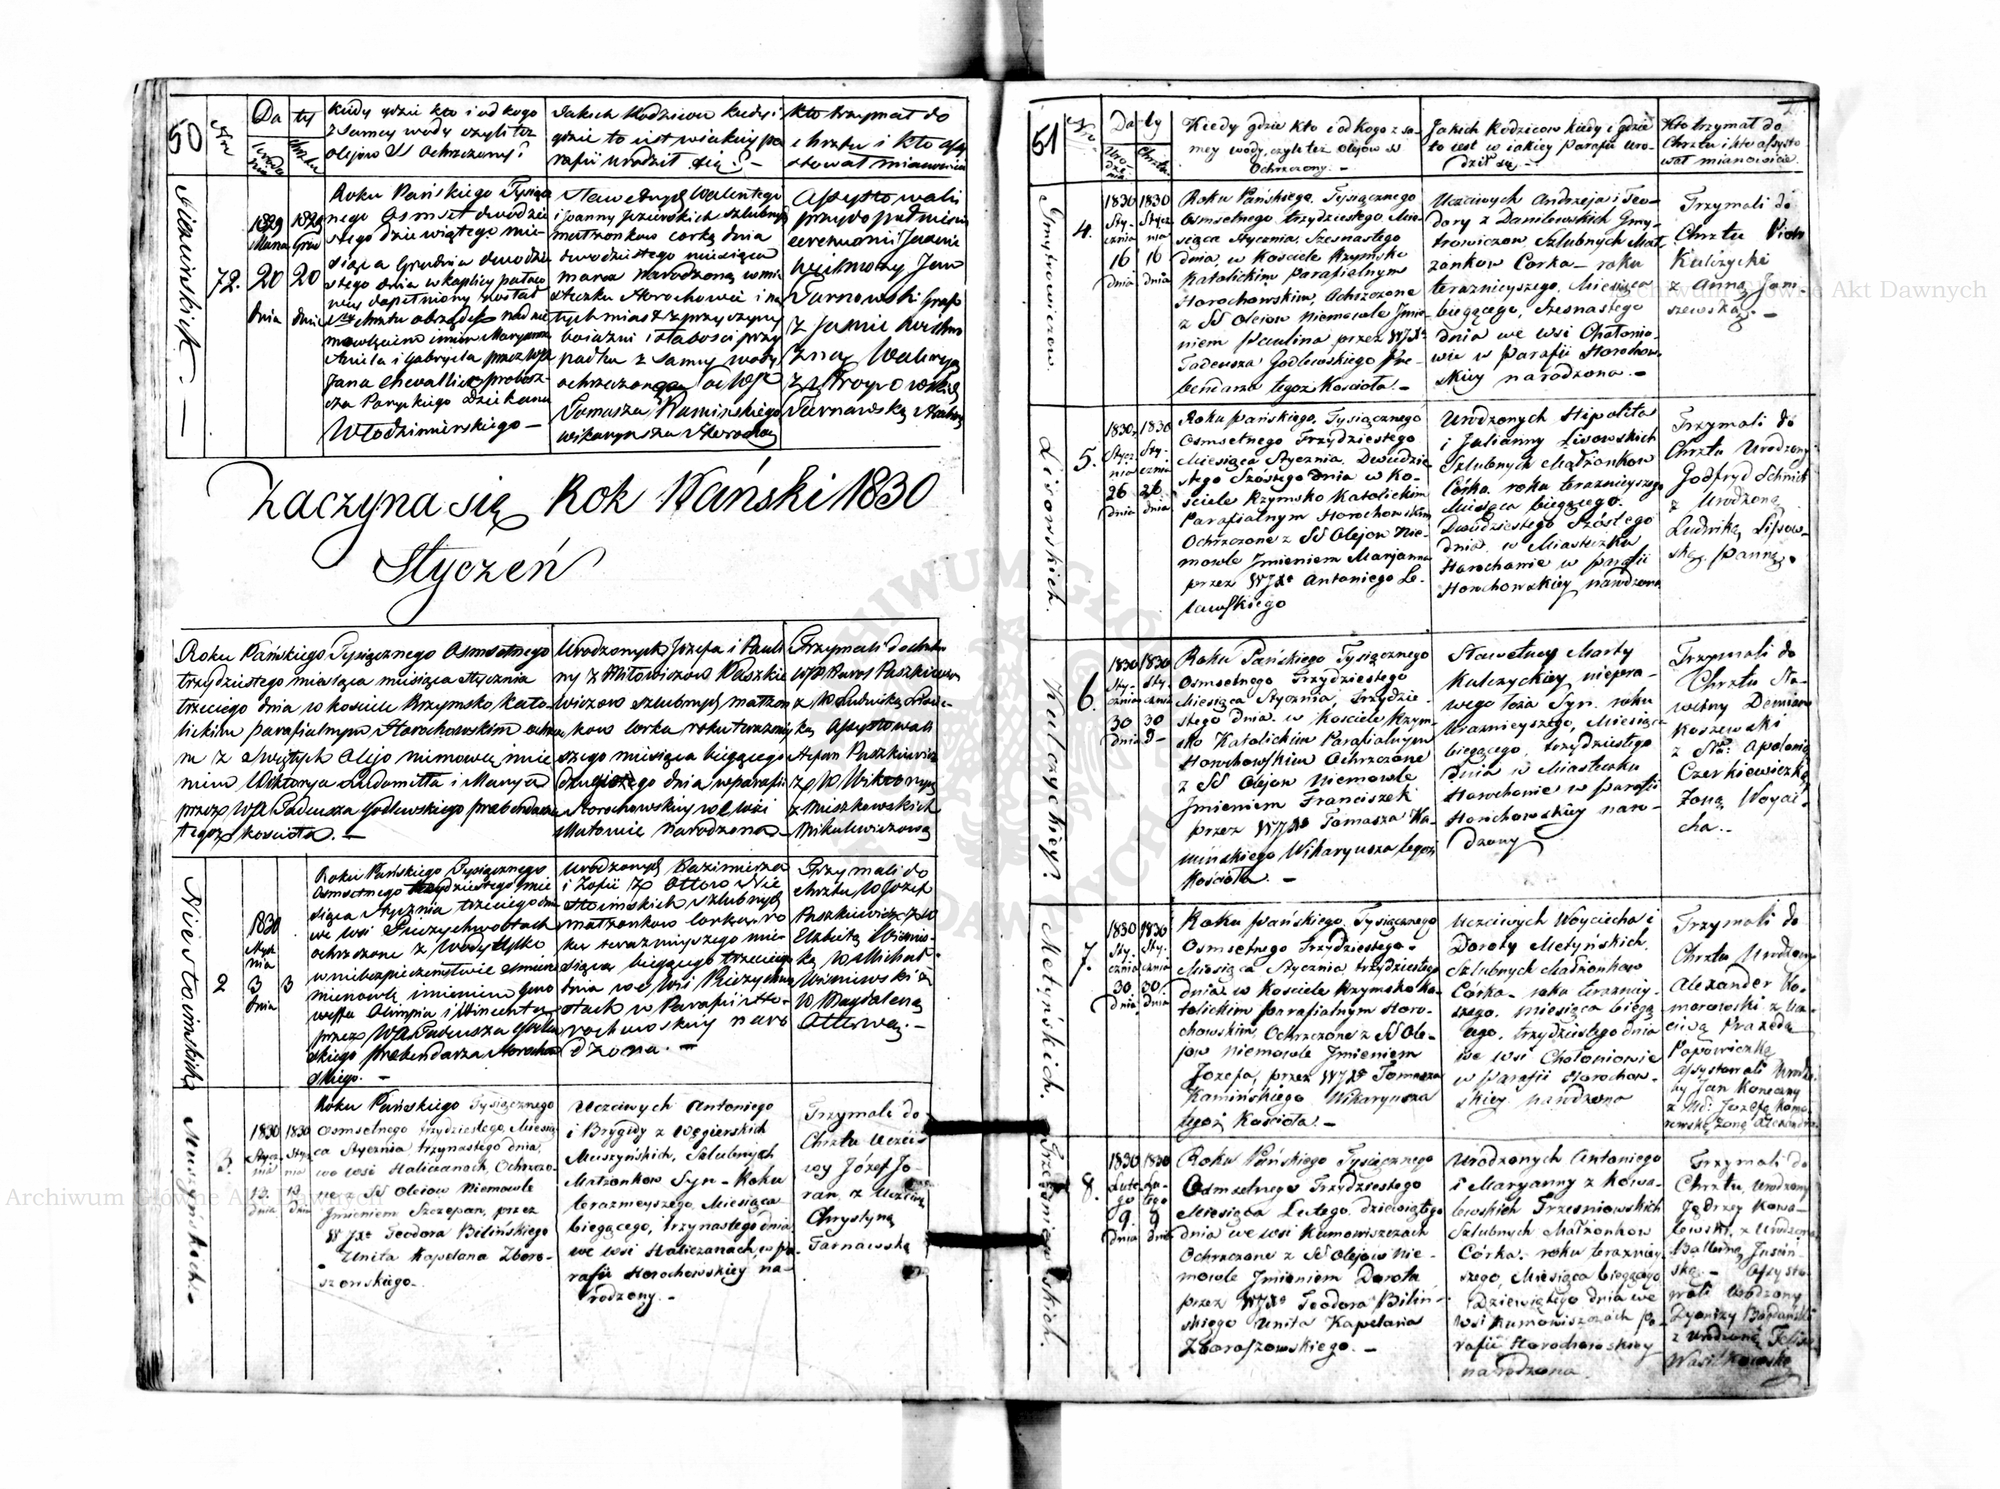 50
Nro
Da ty
Urodze
nia
Chrztu
Kiedy gdzie kto i od kogo
z Samey wody czyli też
olejow SS ochrzczony?
Jakich Rodzicow kiedy i
gdzie to iest w iakiey pa
rafii urodził się? –
Kto trzymał do
chrztu i kto assy
stował mianowicie
72.
1829
Marca
20
dnia
1829
Grud
20
dnia
Roku Pańskiego Tysiącz
nego Osmset dwudzie
stego dziewiątego mie
siąca Grudnia dwudzie
stego dnia w kaplicy pałaco
wey dopełniony został
chrztu obrządek nad nie
mowlęciem imieniem Maryanna
Aniela i Gabryela przez WJX
Jana Chevallier probosz
cza Poryckiego Dziekana
Włodzimierskiego –
Sławetnych Walentego
i Joanny Jezierskich szlubnych
małżonkow corkę dnia
dwudziestego miesiąca
marca narodzoną w mia
steczku Horochowie i na
tychmiast z przyczyny
boiaźni i słabości przy
padku z samey wody
ochrzczoną od WJX
Tomasza Kamińskiego
wikaryusza Horochow
Assystowali
przy dopełnieniu
ceremonii Jaśnie
Wielmożny Jan
Tarnowski Graf
z Jaśnie Wielmo
żną Waleryą
z Stroynowskich
Tarnowską Hrabiną
Zaczyna się Rok Pański 1830
Styczeń
Roku Pańskiego Tysiącznego Osmsetnego
trzydziestego miesiąca miesiąca Stycznia
trzeciego dnia w kosciele Rzymsko kato
lickim parafialnym Horochowskim ochrzczo
na z Swiętych Olejo niemowlę imie
niem Wiktorya Ludomiłła i Marya
przez WJX Tadeusza Godlewskiego prebendarza
tegoż koscioła. –
Urodzonych Józefa i Pauli
ny z Miłowiczow Paszkie
wiczow szlubnych małżon
kow corka roku teraźniey
szego miesiąca bieżącego
dnia w parafii
Horochowskiey we wsi
narodzona –
Trzymali do chrztu
WP Karol Paszkiewicz
z W Ludwiką
ką Assystowali
Stefan Paszkiewicz
z W Wiktoryą
z Mieszkowskich
Mikulewiczową
Niesłoimskich
2
1830
Stycz
nia
3
dnia
3
Roku Pańskiego Tysiącznego
Osmsetnego trzydziestego mie
siąca Stycznia trzeciego dnia
we wsi Pieczychwostach
ochrzczone z Wody tylko
w niebezpieczenstwie śmierci
niemowlę imieniem Geno
weffa Olimpia i Wincenta
przez WJX Tadeusza Godlew
skiego prebendarza Horochow
skiego. –
Urodzonych Kazimierza
i Zofii z Ottow Nie
słoimskich Szlubnych
małżonkow Corka ro
ku teraznieyszego mie
siąca bieżącego trzeciego
dnia we wsi Pieczychwo
stach w Parafii Ho
rochowskiey naro
dzona. –
Trzymali do
chrztu W Jozef
Paszkiewicz z W
Elżbietą Wisniew
ką W Michał
Wisniewski z
W Magdaleną
Ottową. –
Muszyńskich
3.
1830
Stycz
nia
13.
dnia
1830
Stycz
nia
13
dnia
Roku Pańskiego Tysiącznego
Osmsetnego trzydziestego Miesią
ca Stycznia trzynastego dnia,
we wsi Haliczanach, Ochrzczo
ne z SS Olejow Niemowle
Jmieniem Szczepan, przez
WJX Teodora Bilińskiego
Unita Kapelana Zboro
szowskiego.
Uczciwych Antoniego
i Brygidy z Węgierskich
Muszyńskich, Szlubnych
Małżonkow Syn – Roku
terazneyszego Miesiąca
bieżącego, trzynastego dnia
we wsi Haliczanach, w pa
rafii Horochowskiey na
rodzony. –
Trzymali do
Chrztu Uczci
wy Józef Jo
ran, z Uczciwą
Chrystyną
Tarnawską
51
Nro
Da ty
Uro
dze
nia
Chrztu
Kiedy gdzie kto i od kogo z sa
mey wody, czyli też olejow SS
Ochrzczony. –
Jakich Rodzicow kiedy i gdzie
to iest w iakiey Parafii uro
dził się. –
Kto trzymał do
Chrztu i kto assysto
wał mianowicie.
Gmytrowiczow.
4.
1830
Sty-
cznia
16
dnia
1830
Stycz
nia
16
dnia
Roku Pańskiego, Tysiącznego
Osmsetnego, trzydziestego, Mie
siąca Stycznia, Szesnastego
dnia, w Kosciele Rzymsko
Katolickim Parafialnym
Horochowskim, Ochrzczone
z SS Olejow Niemowle Jmie
niem Paulina przez WJX
Tadeusza Godlewskiego Pre
bendarza tegoż Kościoła. –
Uczciwych Andrzeja i Teo
dory z Danilewskich Gmy
trowiczow Szlubnych Mał
żonkow Corka – roku
teraznieyszego, Miesiąca
bieżącego, Szesnastego
dnia we wsi Chołonio
wie w parafii Horochow
skiey narodzona. –
Trzymali do
Chrztu Piotr
Kulczycki
z Anną Jani
szewską. –
Lisowskich.
5.
1830.
Stycz
nia
26
dnia
1830
Sty-
cznia
26.
dnia
Roku Pańskiego, Tysiącznego
Osmsetnego Trzydziestego
Miesiąca Stycznia, Dwudzie
stego Szóstego dnia w Ko-
ściele Rzymsko Katolickim
Parafialnym Horochowskim
Ochrzczone z SS Olejow Nie-
mowle Jmieniem Marjanna
przez WJX Antoniego Le-
sławskiego
Urodzonych Hipolita
i Julianny Lisowskich
Szlubnych Małżonkow
Córka, roku teraznieyszego
Miesiąca bieżącego.
Dwudziestego Szóstego
dnia, w Miasteczku
Horochowie w parafii
Horochowskiey narodzona
Trzymali do
Chrztu Urodzony
Godfryd Schmidt
z Urodzoną
Ludwiką Lisow-
ską, Panną.
Kulczyckiey.
6.
1830
Sty-
cznia
30
dnia
1830
Sty-
cznia
30
d –
Roku Pańskiego Tysiącznego
Osmsetnego Trzydziestego
Miesiąca Stycznia, Trzydzie-
stego dnia, w Kosciele Rzym-
sko Katolickim Parafialnym
Horochowskim Ochrzczone
z SS Olejow Niemowle
Jmieniem Franciszek
przez WJX Tomasza Ka-
mińskiego Wikaryusza tegoż
Kościoła. –
Sławetney Marty
Kulczyckiey niepra-
wego łoża Syn. roku
teraznieyszego, Miesiąca
bieżącego, trzydziestego
dnia w Miasteczku
Horochowie w parafii
Horochowskiey naro-
dzony
Trzymali do
Chrztu Sła-
wetny Demian
Koszewski
z Apolonią
Czerkiewiczką
Żoną Woycie-
cha. –
Metyńskich.
7.
1830
Sty-
cznia
30
dnia
1830
Sty-
cznia
30.
dnia
Roku Pańskiego, Tysiącznego
Osmsetnego Trzydziestego.
Miesiąca Stycznia, trzydziestego
dnia w Kosciele Rzymsko Ka-
tolickim parafialnym Horo-
chowskim, Ochrzczone z SS Ole-
jow Niemowle Jmieniem
Jozefa, przez WJX Tomasza
Kamińskiego Wikaryusza
tegoż Kościoła. –
Uczciwych Woyciecha i
Doroty Metyńskich,
Szlubnych Małżonkow
Córka – roku teraznioy-
szego, miesiąca bieżą
cego, trzydziestego dnia
we wsi Chołoniowie
w parafii Horochow-
skiey, narodzona
Trzymali do
Chrztu Urodzony
Alexander Ko-
morowski z Ucz
ciwą Praxedą
Popowiczką
Assystowali Urodzo
ny Jan Konczany
z Ur: Jozefą Komo
rowską żoną Alexandra
Trzesniowskich.
8.
1830
Lute-
go
9
dnia
1830
Lu-
tego
9
dnia
Roku Pańskiego Tysiącznego
Osmsetnego Trzydziestego
Miesiąca Lutego, dziewiątego
dnia we wsi Kumowiszczach
Ochrzczone z SS Olejow Nie-
mowle Jmieniem Dorota
przez WJX Teodora Biliń-
skiego Unita Kapelana
Zboraszowskiego. –
Urodzonych Antoniego
i Maryanny z Kowa-
lewskich Trzesniowskich
Szlubnych Małżonkow
Córka, roku terazniey
szego, Miesiąca bieżącego
dziewiątego dnia we
wsi Kumowiszczach pa-
rafii Horochowskiey
narodzona
Trzymali do
Chrztu, Urodzony
Jędrzey Kowa-
lewski, z Urodzoną
Balbiną Jusiń-
ską. – Assysto-
wali Urodzony
Dyonizy Bogdański
z Urodzoną Felixą
Wasilkowską
Archiwum Główne Akt Dawnych
Archiwum Główne Akt Dawnych
ARCHIWUM GŁÓWNE AKT DAWNYCH